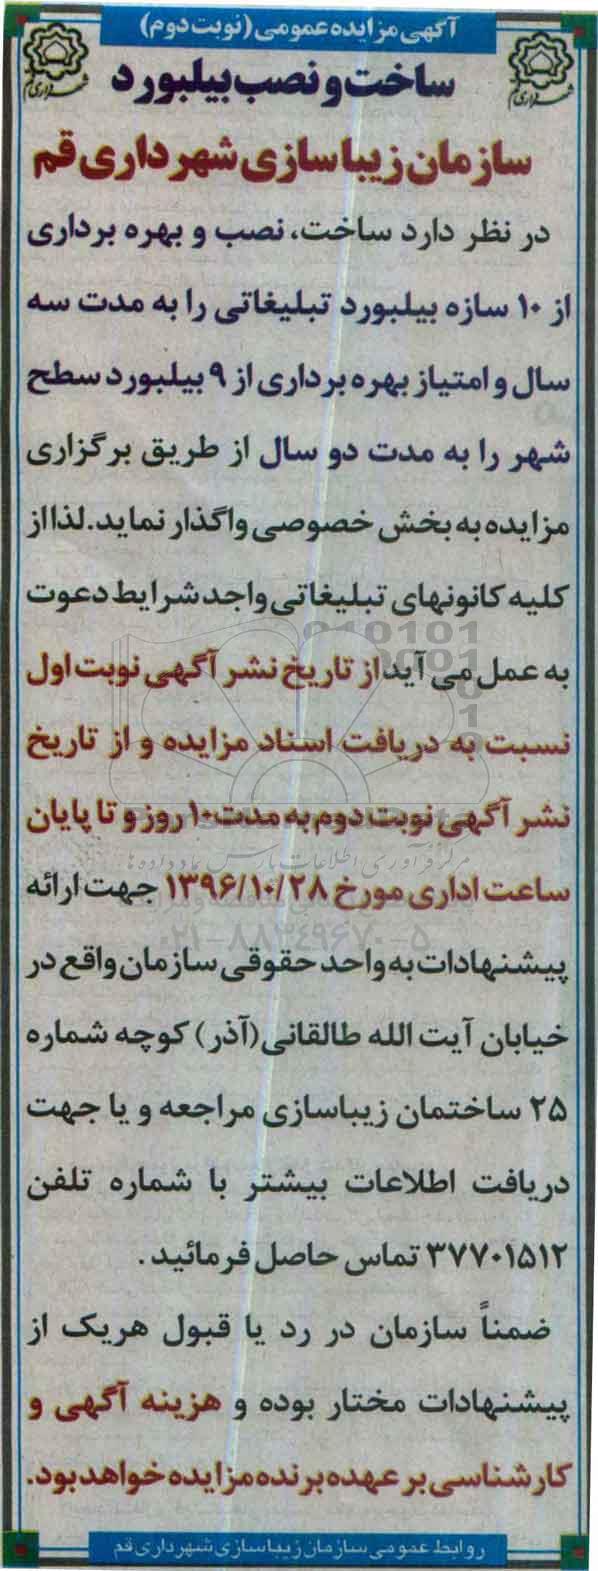 آگهی مزایده عمومی (نوبت دوم)
ساخت و نصب بیلبورد
سازمان زیباسازی شهرداری قم
در نظر دارد ساخت، نصب و بهره برداری
از ۱۰ سازه بیلبورد تبلیغاتی را به مدت سه
سال و امتیاز بهره برداری از ۹ بیلبورد سطح
شهر را به مدت دو سال از طریق برگزاری
مزایده به بخش خصوصی واگذار نماید. لذا از
کلیه کانونهای تبلیغاتی واجد شرایط دعوت
به عمل می آید از تاریخ نشر آگهی نوبت اول
نسبت به دریافت اسناد مزایده و از تاریخ
نشر آگهی نوبت دوم به مدت ۱۰ روز و تا پایان
ساعت اداری مورخ ۱۳۹۶/۱۰/۲۸ جهت ارائه
پیشنهادات به واحد حقوقی سازمان واقع در
خیابان آیت الله طالقانی (آذر) کوچه شماره
۲۵ ساختمان زیباسازی مراجعه و یا جهت
دریافت اطلاعات بیشتر با شماره تلفن
۳۷۷۰۱۵۱۲ تماس حاصل فرمائید .
ضمناً سازمان در رد یا قبول هریک از
پیشنهادات مختار بوده و هزینه آگهی و
کارشناسی بر عهده برنده مزایده خواهد بود.
روابط عمومی سازمان زیباسازی شهرداری قم
مرکز فرآوری اطلاعات پارس نماد داده ها
۰۲۱-۸۸۳۴۹۶۷۰-۵